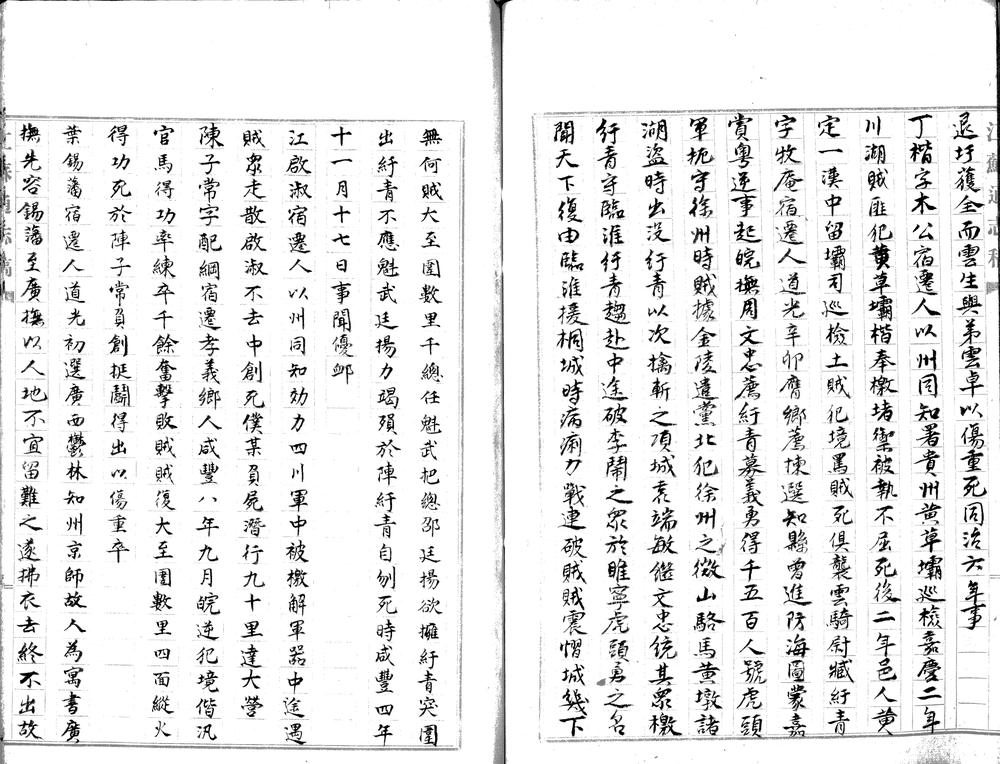 退圩獲全而雲生與弟雲卓以傷重死同治六年事
丁楷字木公宿遷人以州同知署貴州黄草壩巡檢嘉慶二年
川湖賊匪犯黄草壩楷奉檄堵禦被執不屈死後二年邑人黄
定一漢中留壩司巡檢土賊犯境罵賊死俱襲雲騎尉臧紆青
字牧庵宿遷人道光辛卯膺鄉薦揀選知縣曾進防海圖蒙嘉
賞粤逆事起皖撫周文忠薦紆青募義勇得千五百人號虎頭
軍扼守徐州時賊據金陵遣黨北犯徐州之微山駱馬黄墩諸
湖盜時出没行青以次擒斬之項城袁端敏繼文忠統其衆檄
行青守臨淮行青趨赴中途破李鬧之衆於睢寧虎頭勇之名
聞天下復由臨淮援桐城時病痢力戰連破賊賊震慴城幾下
無何賊大至圍數里千總任魁武把總邵廷揚欲擁紆青突圍
出紆青不應魁武廷揚力竭殞於陣紆青自刎死時咸豐四年
十一月十七日事聞優卹
江啟淑宿遷人以州同知効力四川軍中被檄解軍器中途遇
賊衆走散啟淑不去中創死僕某負屍潛行九十里達大營
陳子常字配綱宿遷孝義鄉人咸豐八年九月皖逆犯境偕汛
官馬得功率練卒千餘奮擊敗賊賊復大至圍數里四面縱火
得功死於陣子常負創挺鬭得出以傷重卒
葉錫藩宿遷人道光初選廣西鬱林知州京師故人為寓書廣
撫先容錫藩至廣撫以人地不宜留難之遂拂衣去終不出故